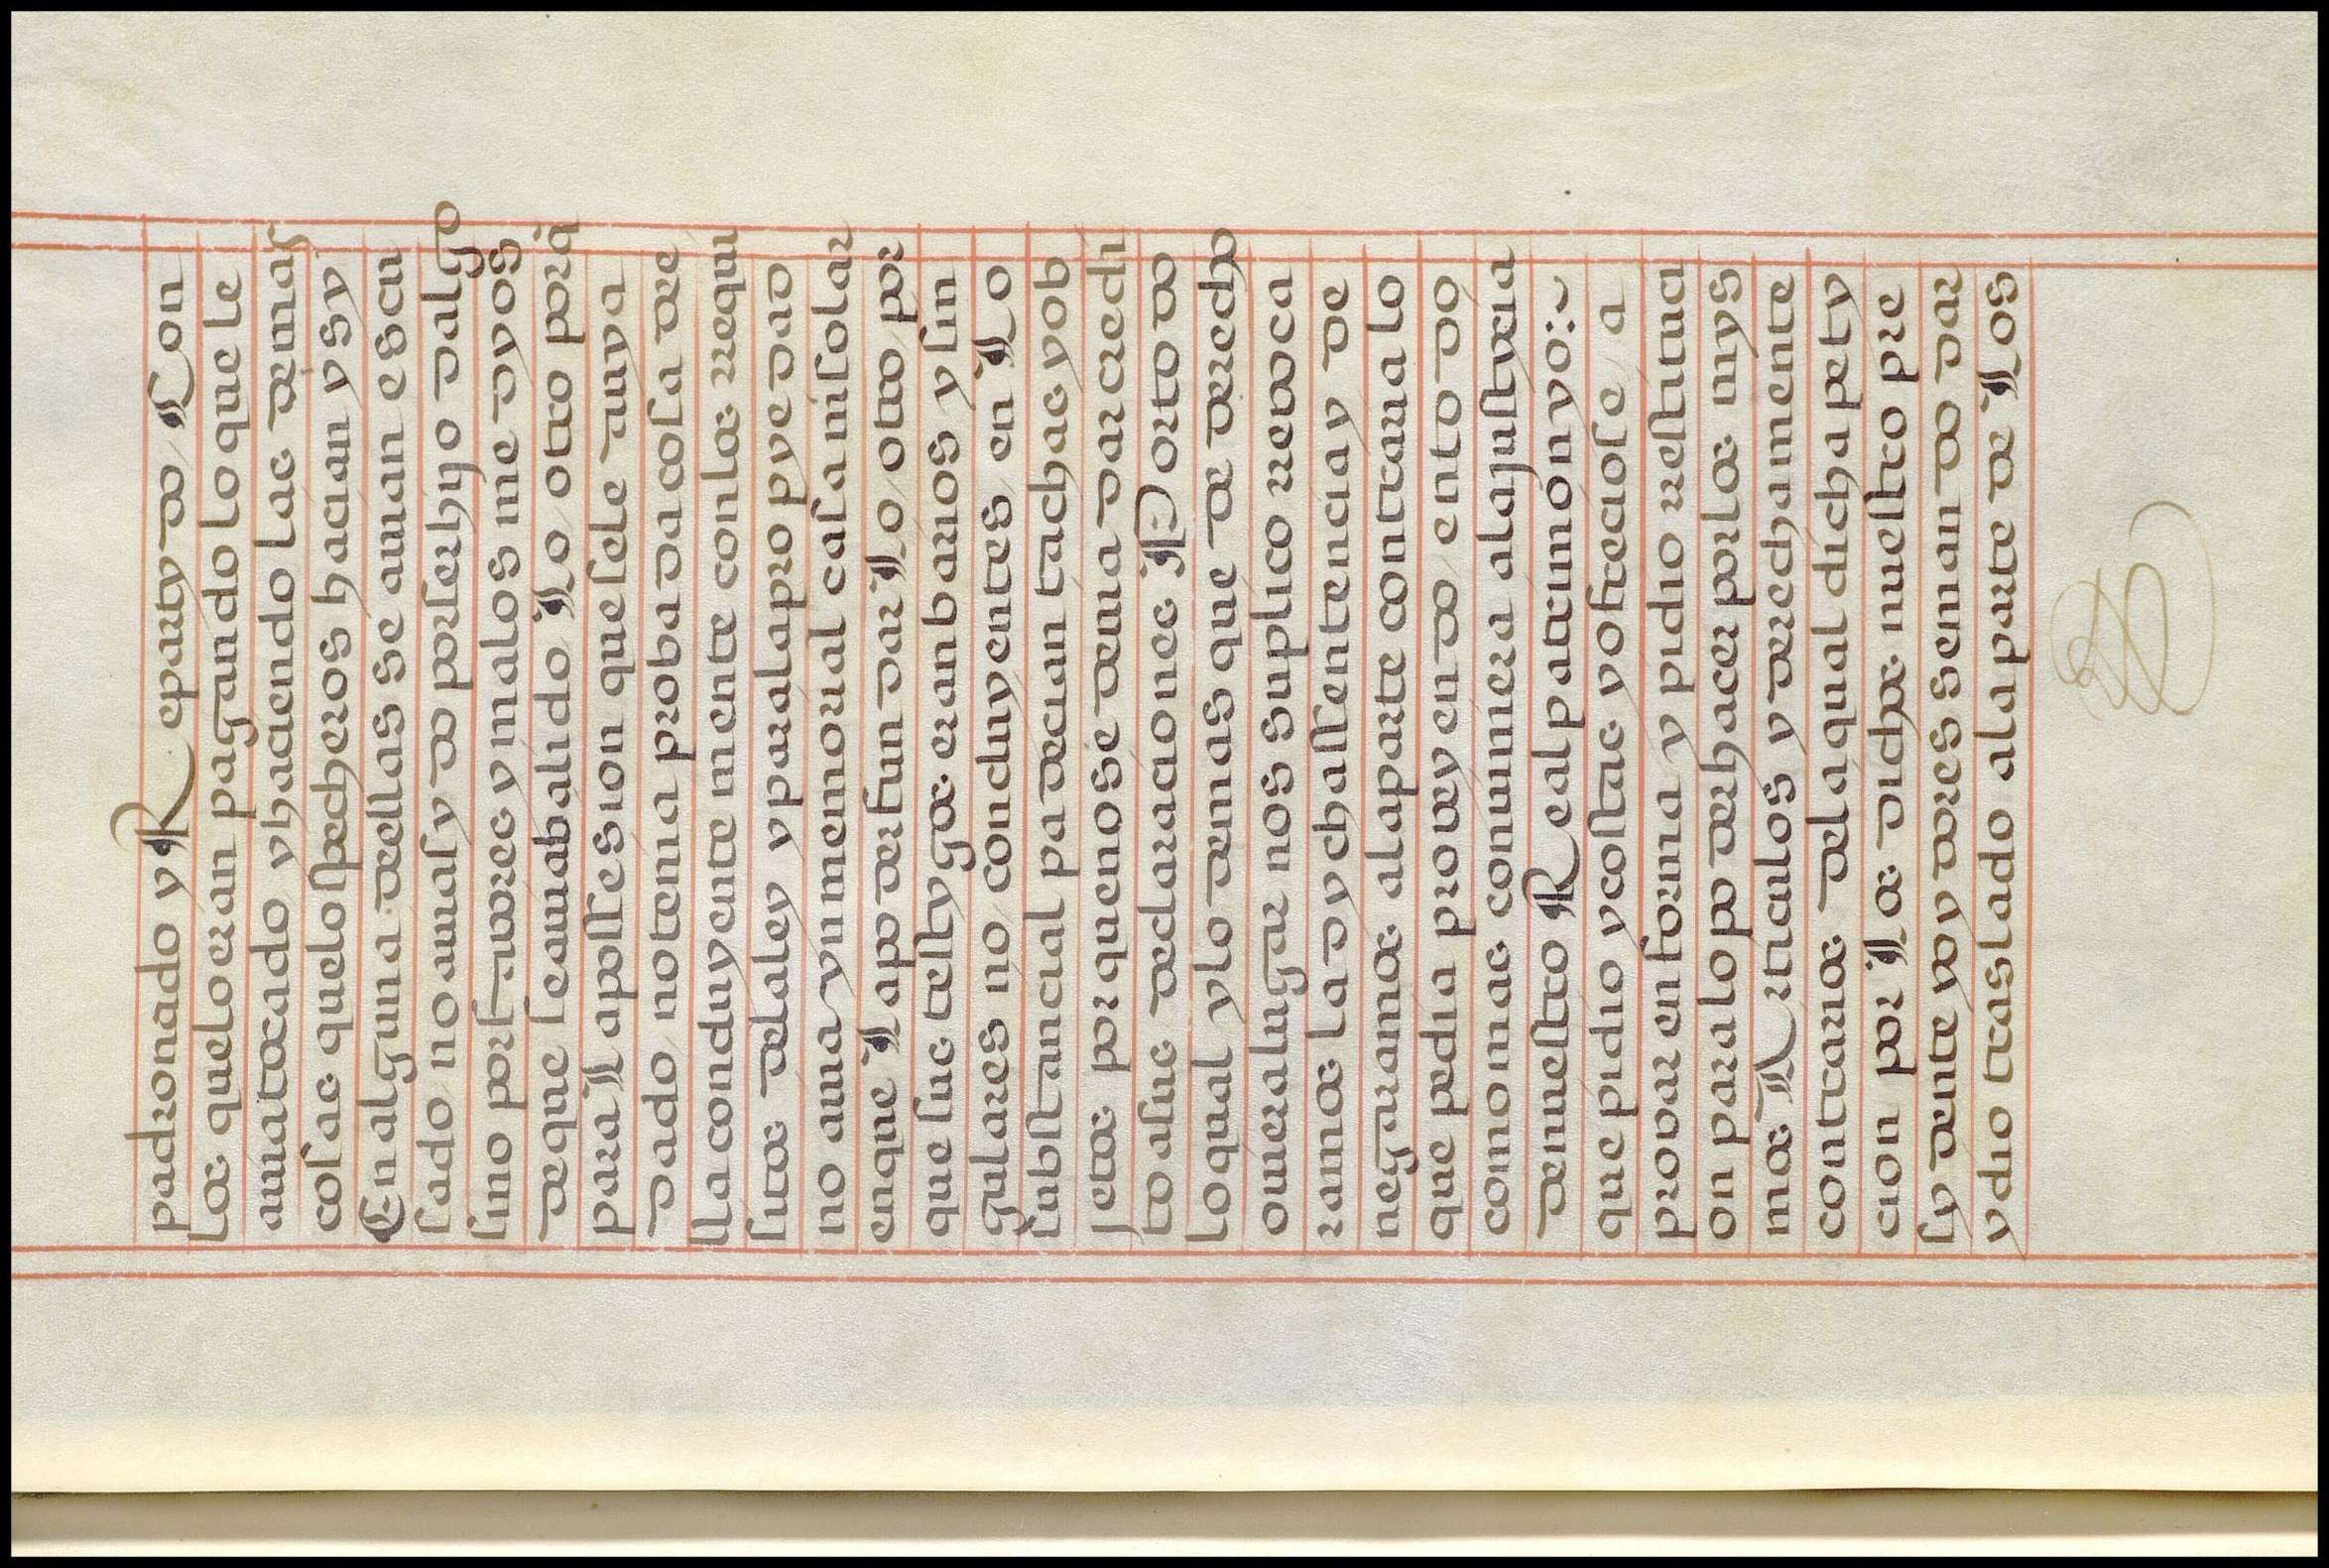 padronado y Repartydo / Con
los quelo eran pagando lo que le
auia tocado y haciendo las demas
cosas quelos pecheros hacian y sy
En alguna dellas se auian escu
sado no auia sydo por ser hijo dalgo
sino por fauores y malos me dyos
de que se auia balido Lo otro porq̃
para La possesion que se le auya
dado / no tenia probada cosa de
lla concluyente mente con los requi
sitos de la ley y para la propyedad
no auia ynmemorial casa ni solar
en que La poder fundar Lo otro / por
que sus testygos eran barios y sin
gulares no concluyentes / en Lo
substancial padecian tachas y ob
jetos por que no se deuia dar credi
to a sus declaraciones Por todo
lo qual y lo demas que de derecho
ouiera lugar nos suplico reuoca
ramos la dycha sentencia y de
negaramos a la parte contraria lo
que pedia proueyendo / en todo
como mas conuiniera a la justycia
de nuestro Real patrimonyo :~
que pidio y costas y ofreciose / a
prouar en forma y pidio restituci
on para lo poder hacer por los mys
mos Articulos y derechamente
contrarios de la qual dicha pety
cion por Los dichos nuestro pre
sydente y oydores se mando dar
y dio traslado a la parte de Los